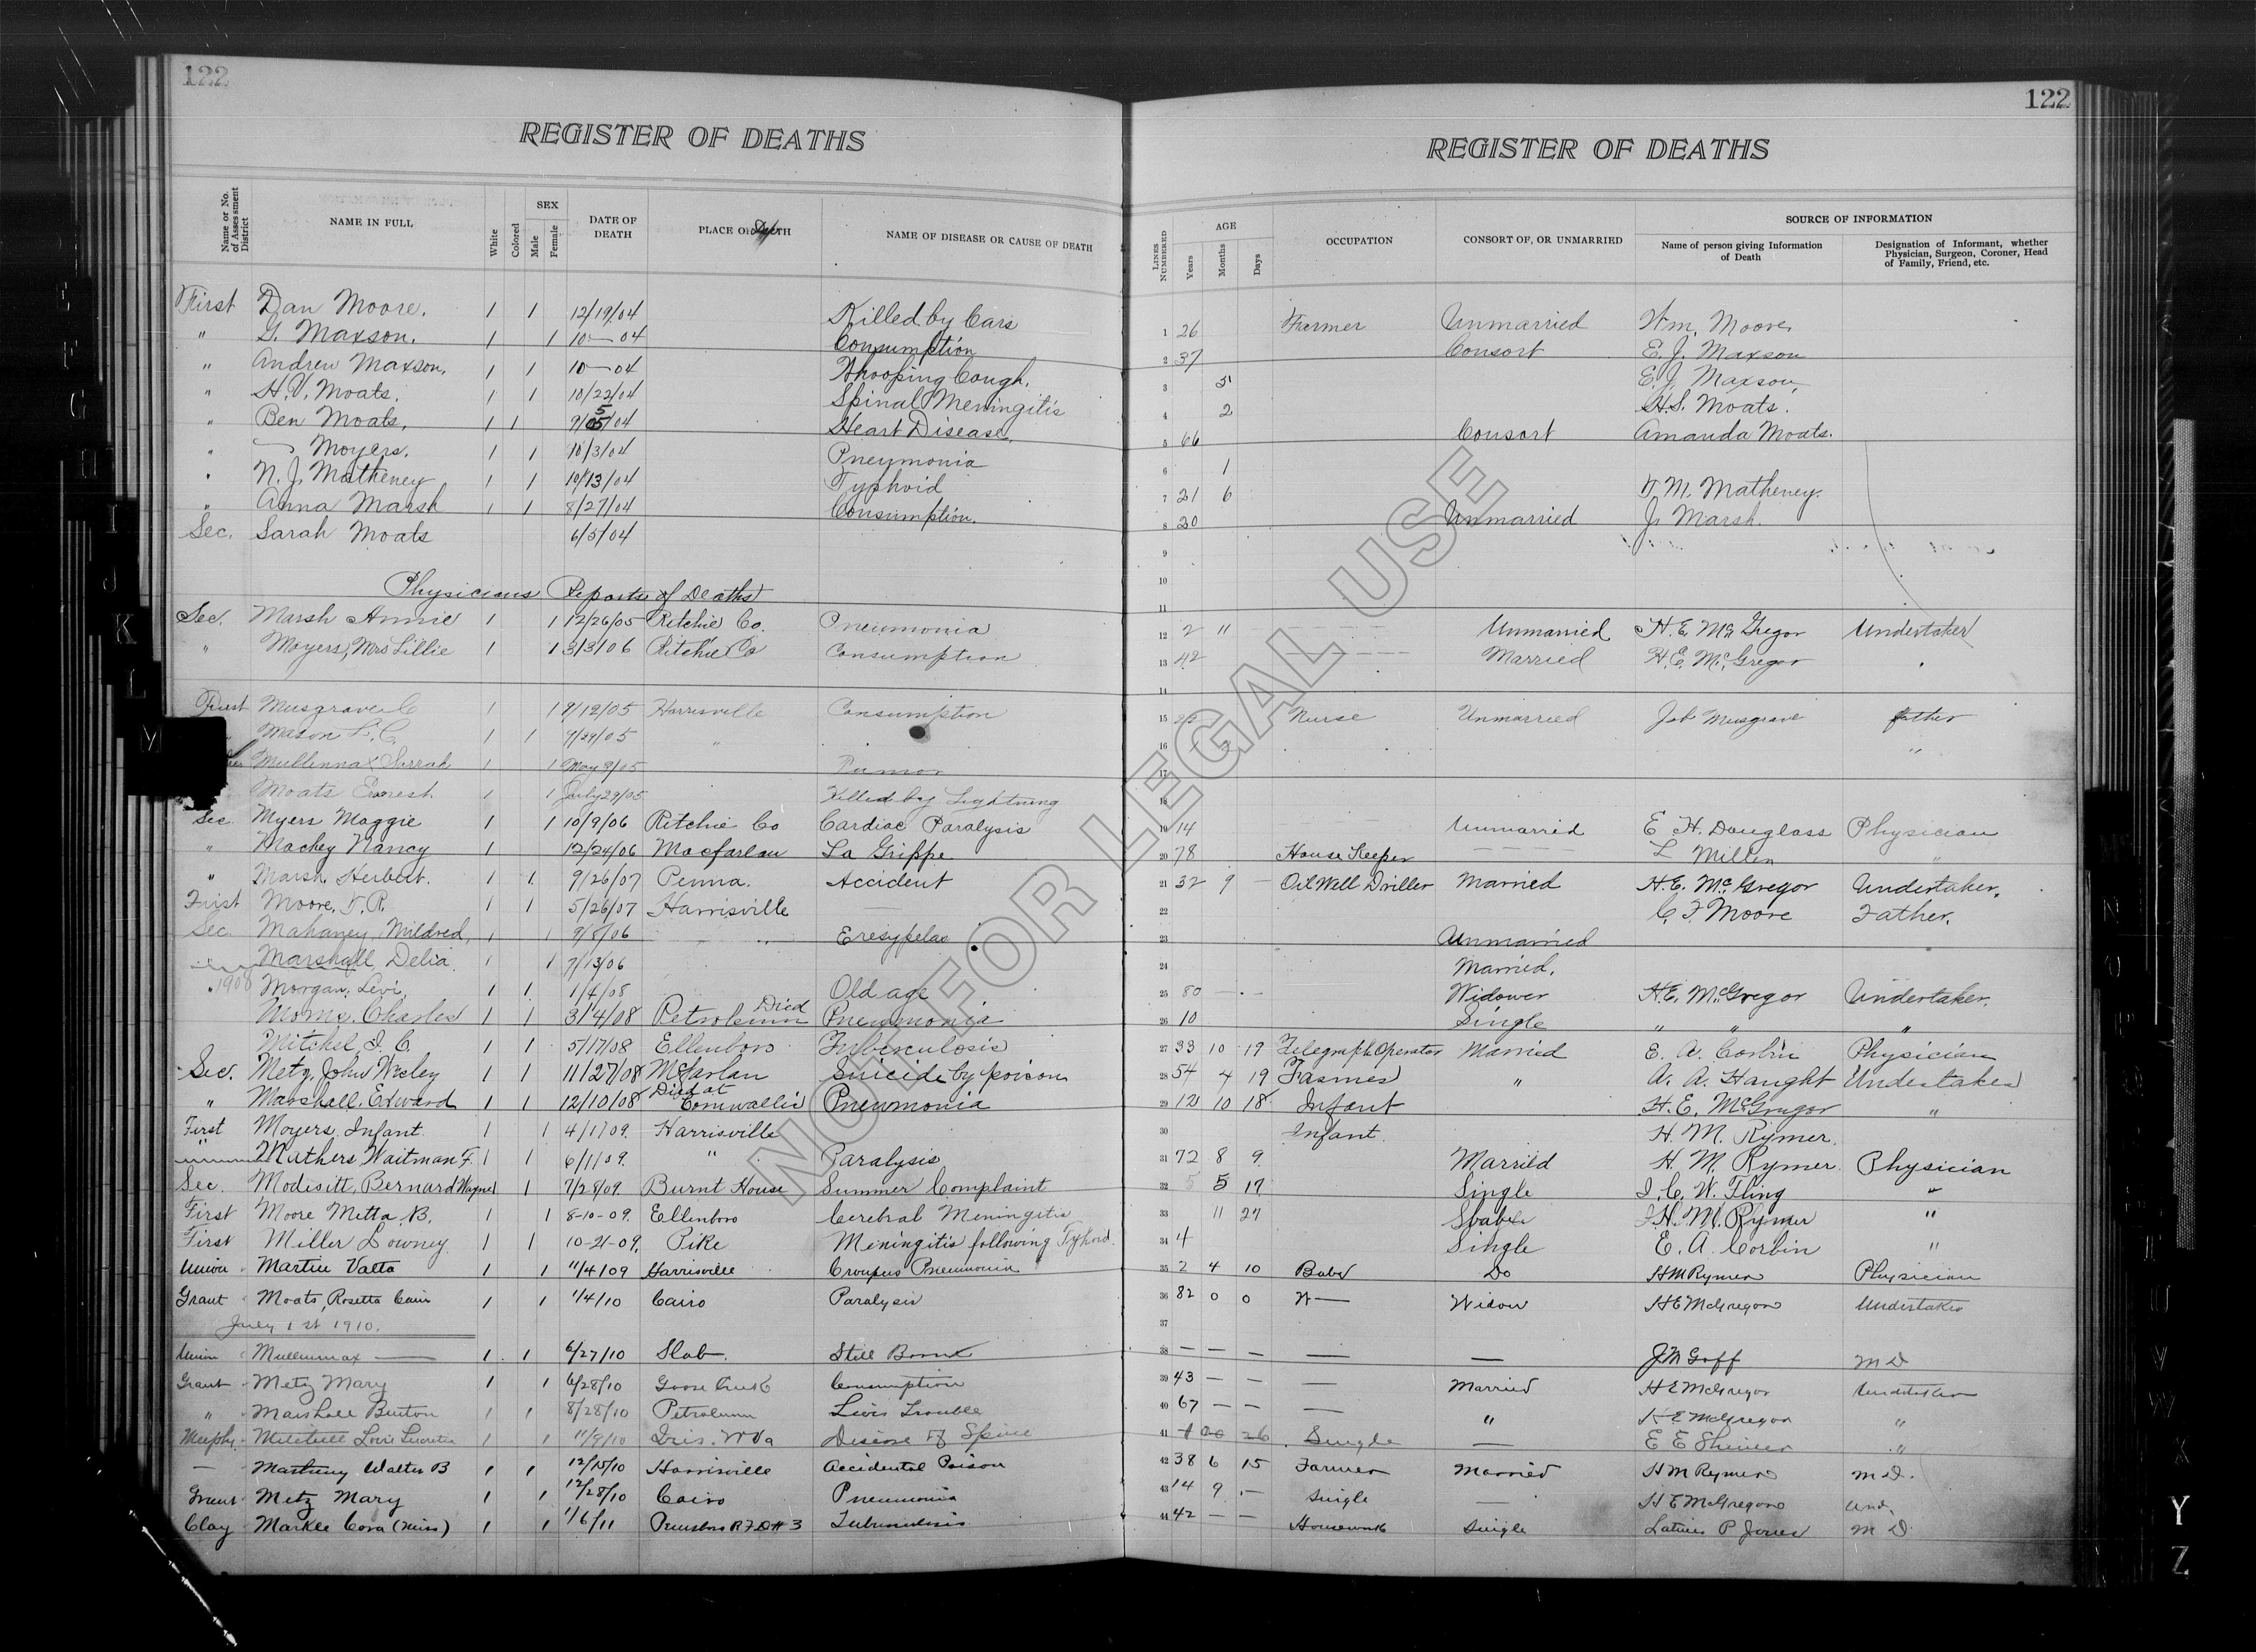 122
122
REGISTER OF DEATHS
REGISTER OF DEATHS
Name or No. of Assessment District
NAME IN FULL
White
Colored
SEX
Male
Female
DATE OF DEATH
PLACE OF DEATH
NAME OF DISEASE OR CAUSE OF DEATH
LINES NUMBERED
AGE
Years
Months
Days
OCCUPATION
CONSORT OF, OR UNMARRIED
SOURCE OF INFORMATION
Name of person giving Information of Death
Designation of Informant, whether Physician, Surgeon, Coroner, Head of Family, Friend, etc.
First Dan Moore. 1 1 12/19/04 Killed by Cars 1 26 Farmer Unmarried Wm. Moore
" G. Maxson. 1 1 10—04 Consumption 2 37 Consort E. J. Maxson
" Andrew Maxson, 1 1 10—04 Whooping Cough. 3 5 E. J. Maxson,
" H.V. Moats. 1 1 10/22/04 Spinal Meningitis 4 2 H.S. Moats.
" Ben Moats, 1 1 9/5/04 Heart Disease. 5 66 Consort Amanda Moats.
" — Moyers. 1 1 10/3/04 Pneymonia 6 1
" N. J. Matheney 1 1 10/13/04 Typhoid 7 21 6 M. Matheney.
" Anna Marsh 1 1 8/27/04 Consumption. 8 20 Unmarried J. Marsh.
Sec. Sarah Moats 6/5/04 9
10
Physicians Reports of Deaths 11
Sec. Marsh Annie 1 1 12/26/05 Ritchie Co. Pneumonia 12 2 11 Unmarried H. E. McGregor Undertaker
" Moyers, Mrs Lillie 1 1 3/3/06 Ritchie Co Consumption 13 42 Married H. E. McGregor "
14
First Musgrave C 1 1 9/12/05 Harrisville Consumption 15 Nurse Unmarried Job Musgrave father
Mason L. C. 1 1 9/29/05 " 16 "
Mullennax Sarrah 1 1 May 9/05 Tumor 17
Moats Ernest 1 1 July 29/05 Killed by Lightning 18
Sec. Myers Maggie 1 1 10/9/06 Ritchie Co Cardiac Paralysis 19 14 Unmarried E. H. Douglass Physician
" Mackey Nancy 1 12/24/06 Macfarlan La Grippe 20 78 House Keeper L Miller "
" Marsh Herbert. 1 1 9/26/07 Penna. Accident 21 32 9 — Oil Well Driller Married H. E. McGregor Undertaker.
First Moore, T. R. 1 1 5/26/07 Harrisville 22 C. F. Moore Father.
Sec. Mahaney, Mildred, 1 1 9/8/06 Eresypelas 23 Unmarried
" Marshall, Delia. 1 1 7/13/06 24 Married.
" 1908 Morgan, Levi, 1 1 1/4/08 Old age 25 80 — — Widower H.E. McGregor Undertaker.
Charles 1 1 3/4/08 Died Petroleum Pneumonia 26 10 Single " " "
Mitchel, I. C. 1 1 5/17/08 Ellenboro Tuberculosis 27 33 10 19 Telegraph Operator Married E. A. Corbin Physician
Sec. Metz, John Wesley 1 1 11/27/08 McFarlan Suicide by poison 28 54 4 19 Farmer " A. A. Haught Undertaker
" Marshall, Edward 1 1 12/10/08 Died at Cornwallis Pneumonia 29 12 10 18 Infant H. E. McGregor "
First Moyers, Infant 1 1 4/1/09. Harrisville 30 Infant. H. M. Rymer.
" Mathers, Waitman F. 1 1 6/1/09. " Paralysis 31 72 8 9 Married H. M. Rymer. Physician
Sec. Modisitt, Bernard Wayne 1 1 7/28/09. Burnt House Summer Complaint 32 5 17 Single I. C. W. Fling "
First Moore Metta B. 1 1 8-10-09. Ellenboro Cerebral Meningitis 33 11 27 H. M. Rymer "
First Miller Downey 1 1 10-21-09. Pike Meningitis following Typhoid. 34 4 Single E. A. Corbin "
Union Martin Valta 1 1 11/4/09 Harrisville Croupus Pneumonia 35 2 4 10 Babe Do H M Rymer Physician
Grant Moats, Rosetta Cain 1 1 1/4/10 Cairo Paralysis 36 82 0 0 W— Widow H E McGregor Undertaker
July 1st 1910. 37
Union Mullenax — 1 1 6/27/10 Slab. Still Born 38 — — — — — J M Goff M D
Grant Metz Mary 1 1 6/28/10 Goose Creek Consumption 39 43 — — — Married H E McGregor Undertaker
" Marshall Burton 1 1 8/28/10 Petroleum Liver Trouble 40 67 — — — " H E McGregor "
Murphy Mitchell Lovie Lucretia 1 1 11/9/10 Iris. W Va Disease of Spine 41 26 Single — E E "
— Matheny Walter B 1 1 12/15/10 Harrisville Accidental Poison 42 38 6 15 Farmer Married H M Rymer M D.
Grant Metz Mary 1 1 12/28/10 Cairo Pneumonia 43 14 9 — Single — H E McGregor Und.
Clay Markle Cora (Miss) 1 1 1/6/11 Pennsboro R F D # 3 Tuberculosis 44 42 — — Housework Single P Jones M D.
NOT FOR LEGAL USE